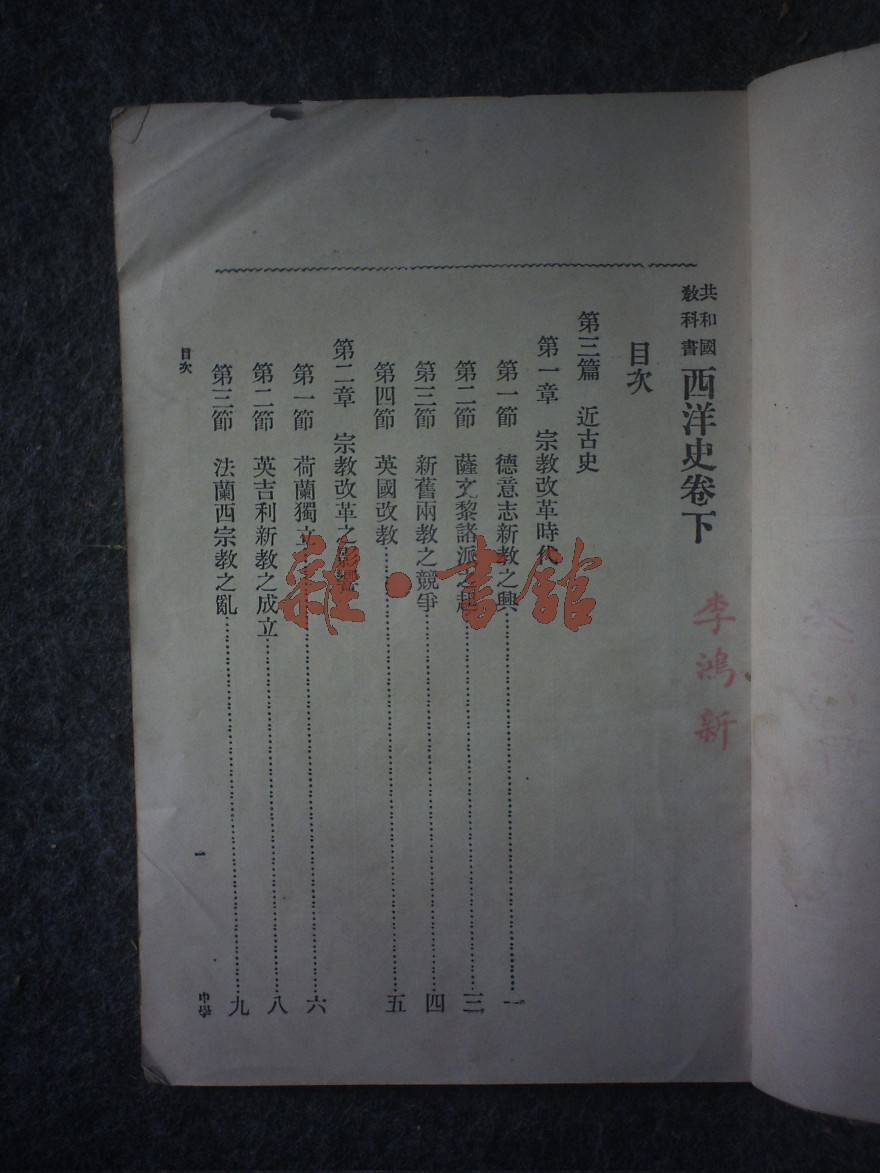 共和國
教科書
西洋史卷下
李鴻新
目次
第三篇 近古史
第一章 宗教改革時代
第一節 德意志新教之興 一
第二節 薩文黎諸派之起 三
第三節 新舊兩教之競爭 四
第四節 英國改教 五
第二章 宗教改革之影響
第一節 荷蘭獨立 六
第二節 英吉利新教之成立 八
第三節 法蘭西宗教之亂 九
目次 一 中學
雜·書館